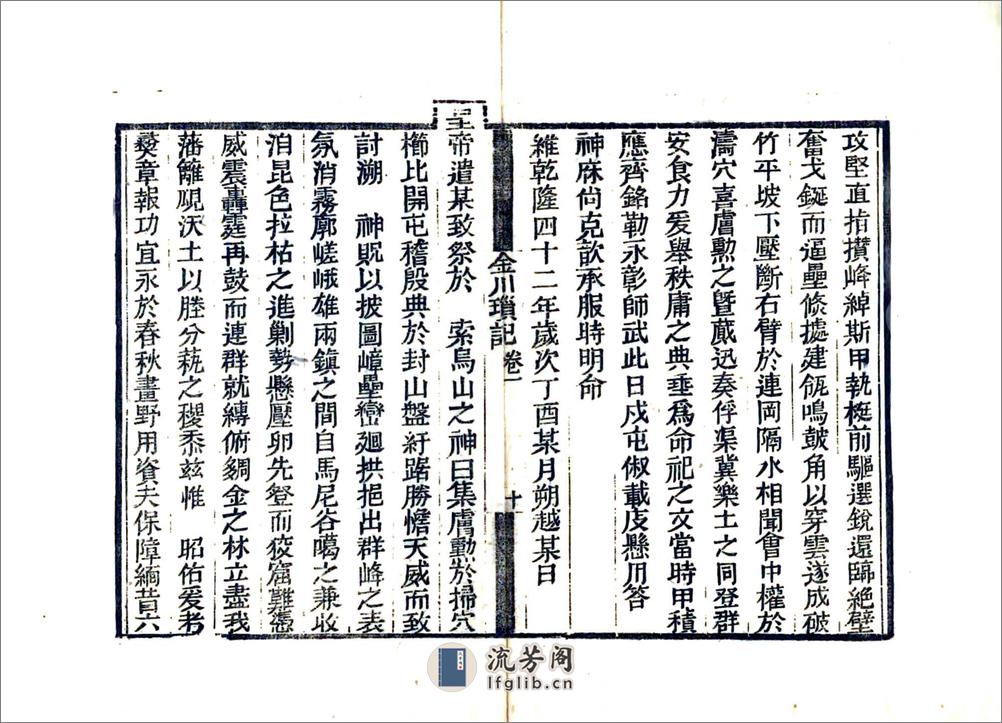 攻堅直指攢峰綽斯甲執梃前驅選銳還臨絕壁
奮戈鋋而逼壘倐攄建瓴鳴皷角以穿雲遂成破
竹平坡下壓斷右臂於連岡隔水相聞會中權於
濤穴喜膚勲之曁蕆迅奏俘渠冀樂土之同登群
安食力爰舉秩庸之典垂爲命祀之文當時甲積
應齊銘勒永彰師武此日戍屯俶載庋懸用答
神庥尙克歆承服時明命
維乾隆四十二年歲次丁酉某月朔越某日
金川瑣記 卷一 十一
皇帝遣某致祭於 索烏山之神曰集膚勳於掃穴
櫛比開屯稽殷典於封山盤紆踞勝憺天威而致
討溯 神旣以披圖嶂壘巒廻拱挹出群峰之表
氛消霧廓嵯峨雄兩鎮之間自馬尼谷噶之兼收
洎昆色拉枯之進剿勢懸壓卵先登而狡窟難憑
威震轟霆再鼓而連群就縛俯鷚金之林立盡我
藩籬覛沃土以塍分蓺之稷黍茲惟 昭佑爰考
彞章報功宜永於春秋畫野用資夫保障緬昔六
流芳阁
lfglib.cn